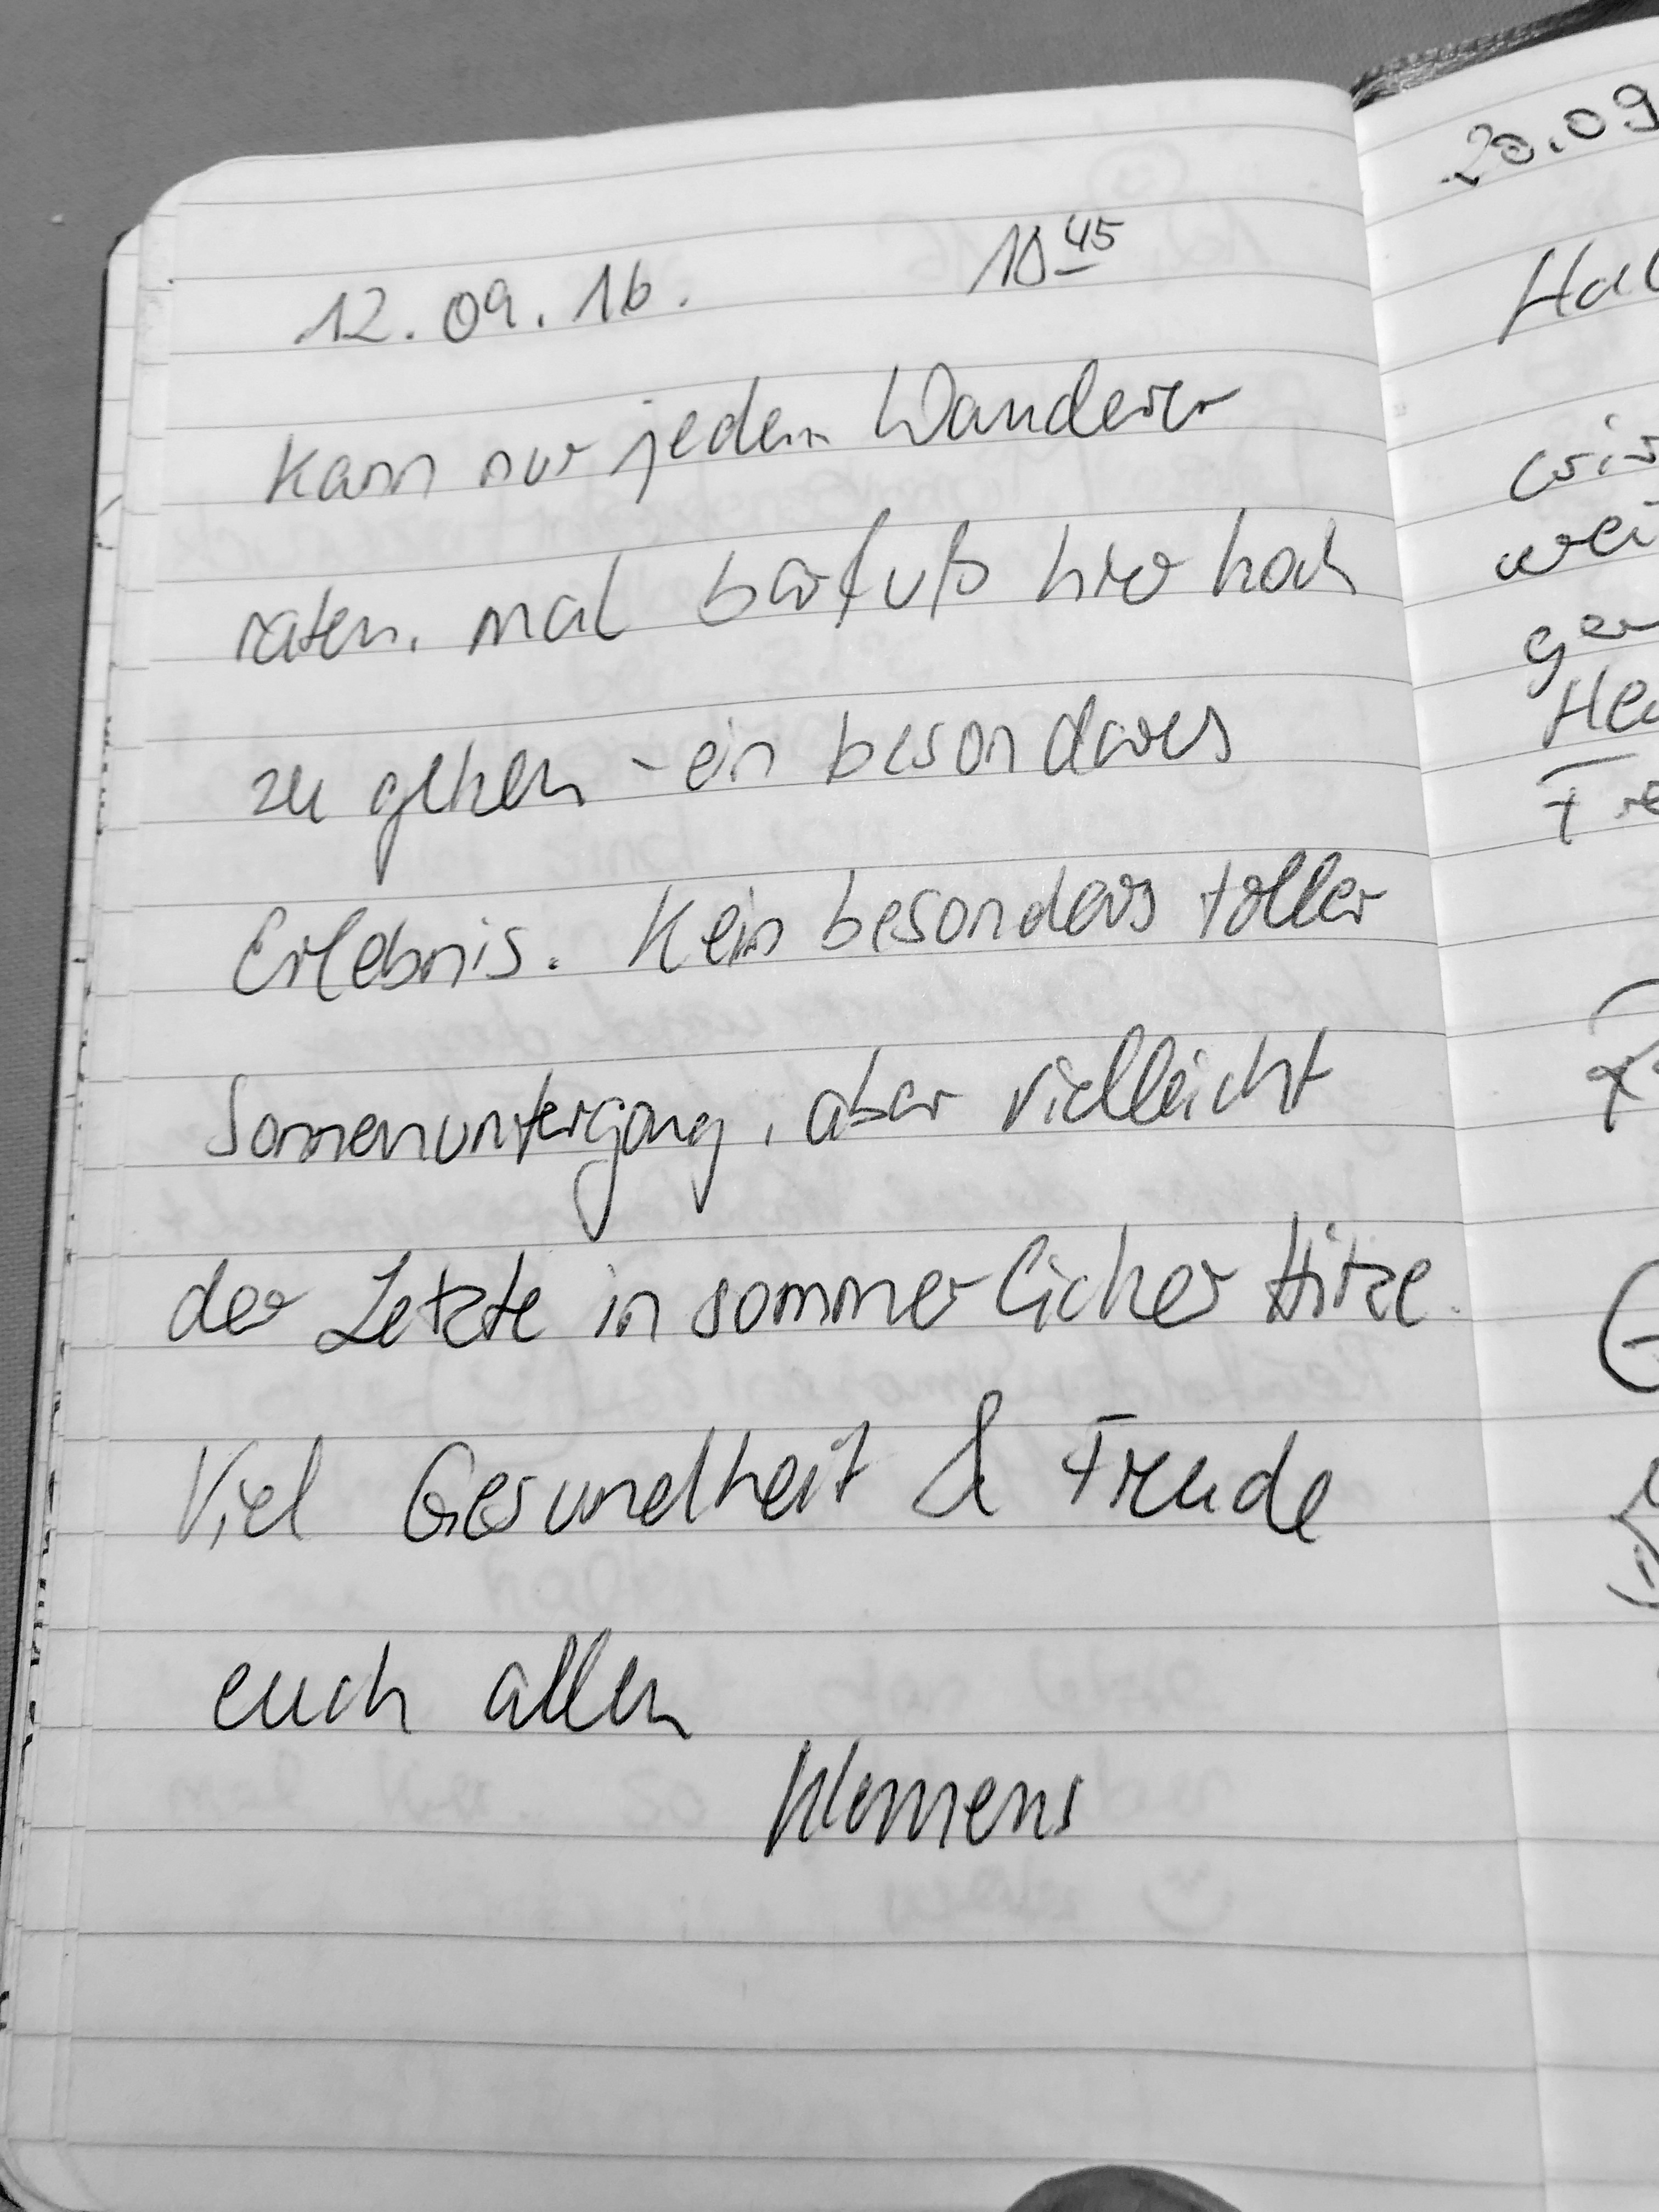 12.09.16. 18⁴⁵
Kann nur jedem Wanderer
raten, mal barfuß hier hoch
zu gehen - ein besonderes
Erlebnis. Kein besonders toller
Sonnenuntergang, aber vielleicht
der Letzte in sommerlicher Hitze.
Viel Gesundheit & Freude
euch allen
Klemens
20.09